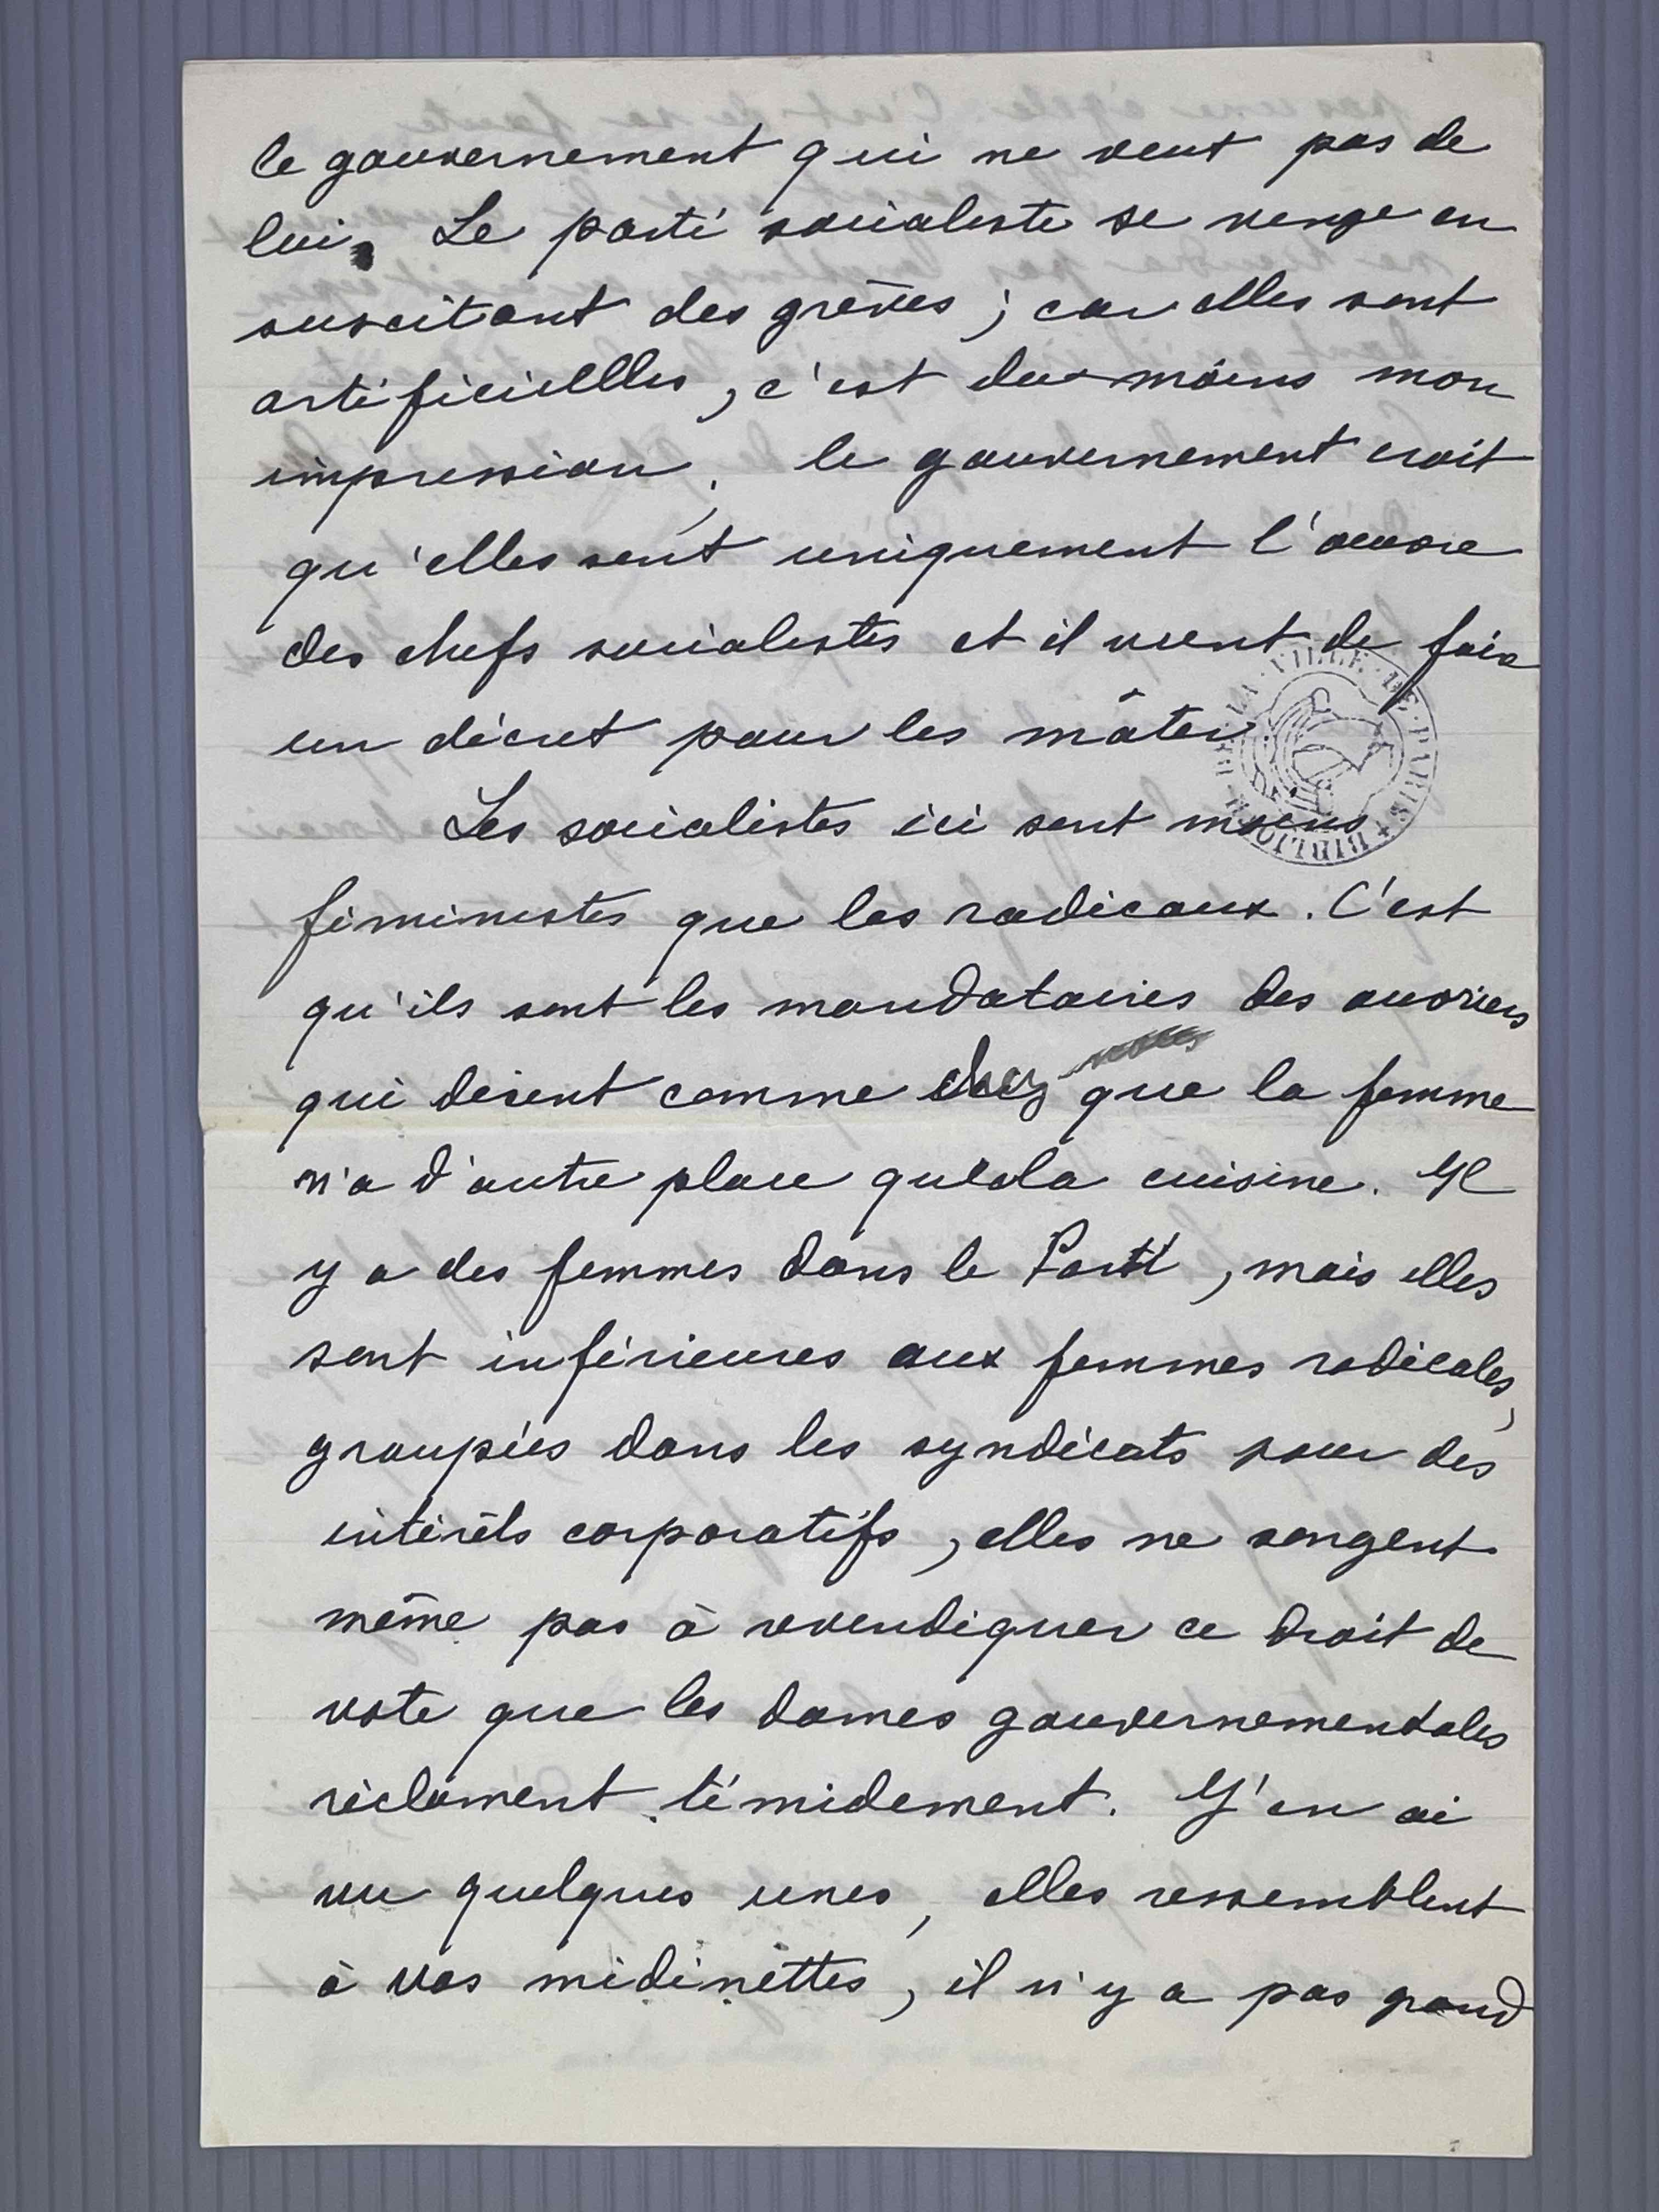 le gouvernement qui ne veut pas de
lui. Le parti socialiste se venge en
suscitant des grèves ; car elles sont
artificiellles, c'est du moins mon
impression ; le gouvernement croit
qu'elles sont uniquement l'œuvre
des chefs socialistes et il vient de faire
un décret pour les mâter.
Les socialistes ici sont moins
féministes que les radicaux. C'est
qu'ils sont les mandataires des ouvriers
qui disent comme chez que la femme
n'a d'autre place qu'à la cuisine. Il
y a des femmes dans le Parti, mais elles
sont inférieures aux femmes radicales,
groupées dans les syndicats pour des
intérêts corporatifs, elles ne songent
même pas à revendiquer ce droit de
vote que les dames gouvernementales
réclament timidement. J'en ai
vu quelques unes, elles ressemblent
à vos midinettes, il n'y a pas grand
BIBLIO DE LA VILLE DE PARIS